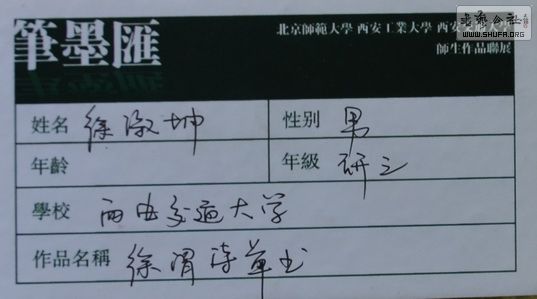 筆墨匯
北京師範大學 西安工業大學 西安交通大學
師生作品聯展
WWW.SHUFA.ORG
姓名 徐淑坤 性别 男
年齡 年級 研二
學校 西安交通大学
作品名稱 徐渭诗草书